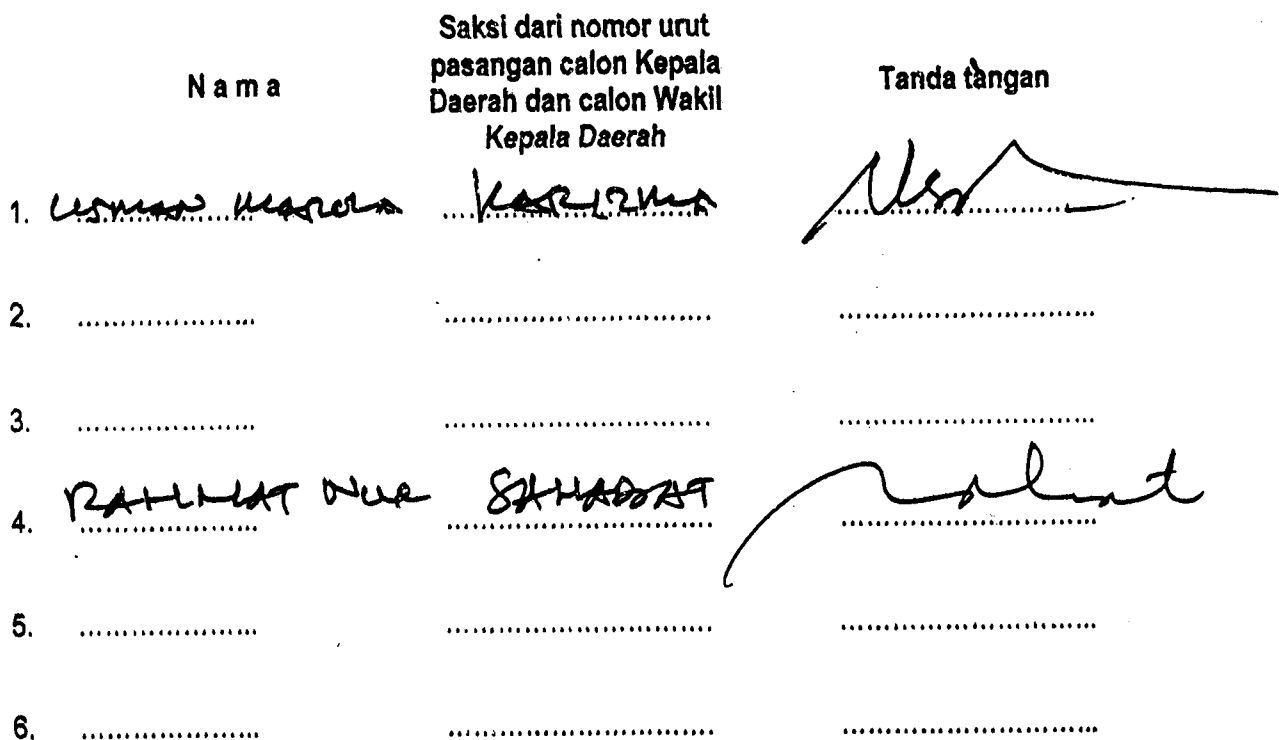 Nama
Saksi dari nomor urut
pasangan calon Kepala
Daerah dan calon Wakil
Kepala Daerah
Tanda tangan
1. USMAN MAROLA KARIZMA
2. .................... .............................. ..............................
3. .................... .............................. ..............................
4. RAHMAT NUR SAHABAT Rahmat
5. .................... .............................. ..............................
6. .................... .............................. ..............................